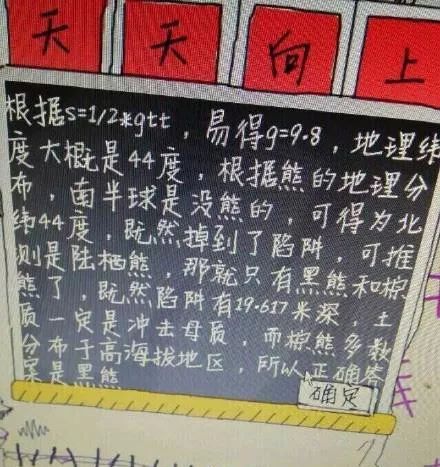 天天向上
根据s=1/2*gtt，易得g=9.8，地理纬
度大概是44度，根据熊的地理分
布，南半球是没熊的，可得为北
纬44度，既然掉到了陷阱，可推
则是陆栖熊，那就只有黑熊和棕
熊了，既然陷阱有19.617米深，土
质一定是冲击母质，而棕熊多数
分布于高海拔地区，所以正确答
案是黑熊
确定